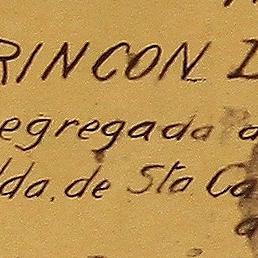 RINCON D
egregada d
lda. de Sta Ca
a